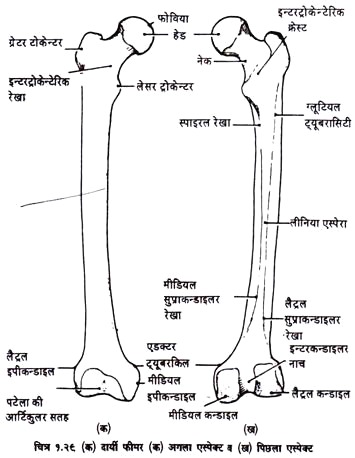 फोविया
हेड
ग्रेटर टोकेन्टर
इन्टरट्रोकेन्टेरिक
रेखा
लेसर ट्रोकेन्टर
लैट्रल
इपीकन्डाइल
पटेला की
आर्टिकुलर सतह
एडक्टर
ट्यूबरकिल
मीडियल
इपीकन्डाइल
(क)
इन्टरट्रोकेन्टेरिक
क्रेस्ट
नेक
स्पाइरल रेखा
ग्लूटियल
ट्यूबरासिटी
लीनिया एस्पेरा
मीडियल
सुप्राकन्डाइलर
रेखा
लैट्रल
सुप्राकन्डाइलर
रेखा
इन्टरकन्डाइलर
नाच
लैट्रल कन्डाइल
मीडियल कन्डाइल
(ख)
चित्र १.२९ (क) दायीं फीमर (क) अगला एस्पेक्ट व (ख) पिछला एस्पेक्ट